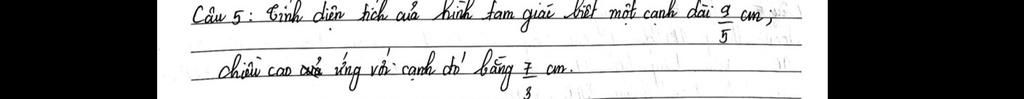 Câu 5: Tính diện tích của hình tam giác biết một cạnh dài 9/5 cm;
chiều cao ứng với cạnh đó bằng 7/3 cm.